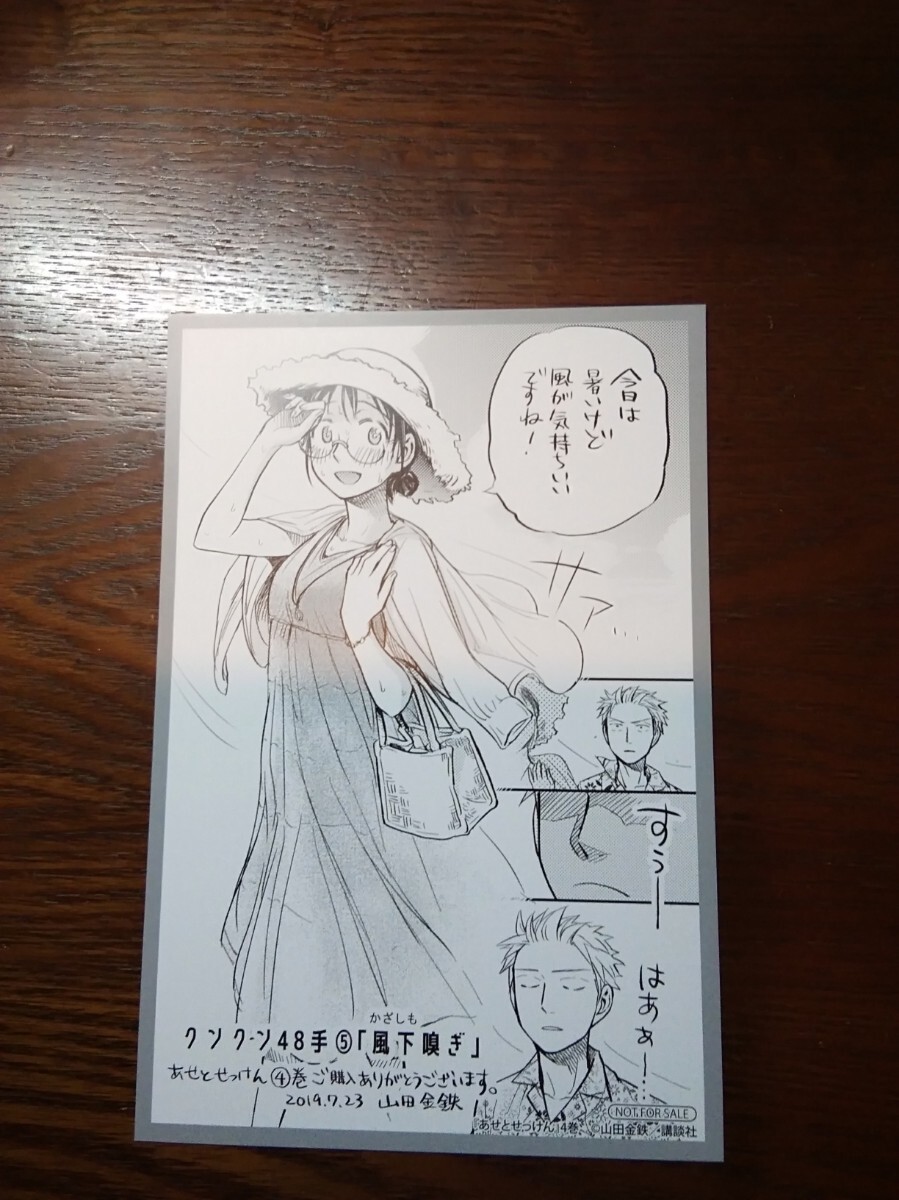 今日は
暑いけど
風が気持ちいい
ですね!
サァ…
すぅー
はあぁー…
かざしも
クンクン48手⑤「風下嗅ぎ」
あせとせっけん④巻ご購入ありがとうございます。
2019.7.23 山田金鉄
NOT FOR SALE
あせとせっけん 4巻 ©山田金鉄/講談社